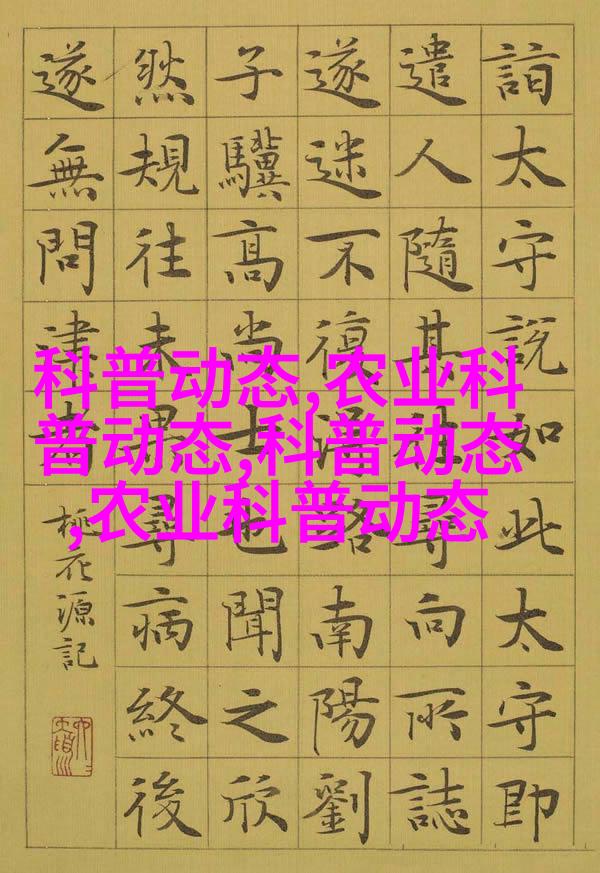 詣太守說如此太守即
遣人隨其往尋向所誌
遂迷不復得路南陽劉
子驥高尚士也聞之欣
然規往未果尋病終後
遂無問津者
桃花源記
科普动态,农业科
普动态,科普动态
,农业科普动态